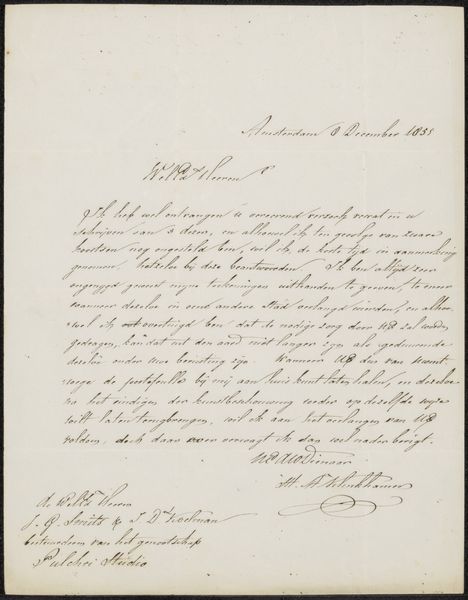 Amsterdam 8 December 1855
WelEd. Heeren
Ik heb wel ontvangen uw vereerend verzoek vervat in uw
schrijven van 3 dezer, en alhoewel ik ten gevolge van zware
koortsen nog ongesteld ben, wil ik, de korte tijd in aanmerking
genomen, hetzelve bij deze beantwoorden. Ik ben altijd zeer
geweest mijne teekeningen uithanden te geven, te meer
wanneer dezelve in eene andere stad verlangd worden, en alhoe-
wel ik overtuigd ben dat de nodige zorg door UE zal worden
gedragen, kan dat uit den aard niet langer zijn als gedurende
dezelve onder uwe berusting zijn. Wanneer UE dus van
wege de portefeuille bij mij aan huis kunt laten halen, en dezelve
na het eindigen der kunstbeschouwing weder op dezelfde wijze
wilt laten terugbrengen, wil ik aan het verlangen van UE
voldoen, doch daar over verwacht ik dan wel nader berigt.
UEd DW Dienaar
H. A. Klinkhamer
de WelEd. Heeren
J. G. Smits & J. D. Koelman
bestuurderen van het genootschap
Pulchri Studio